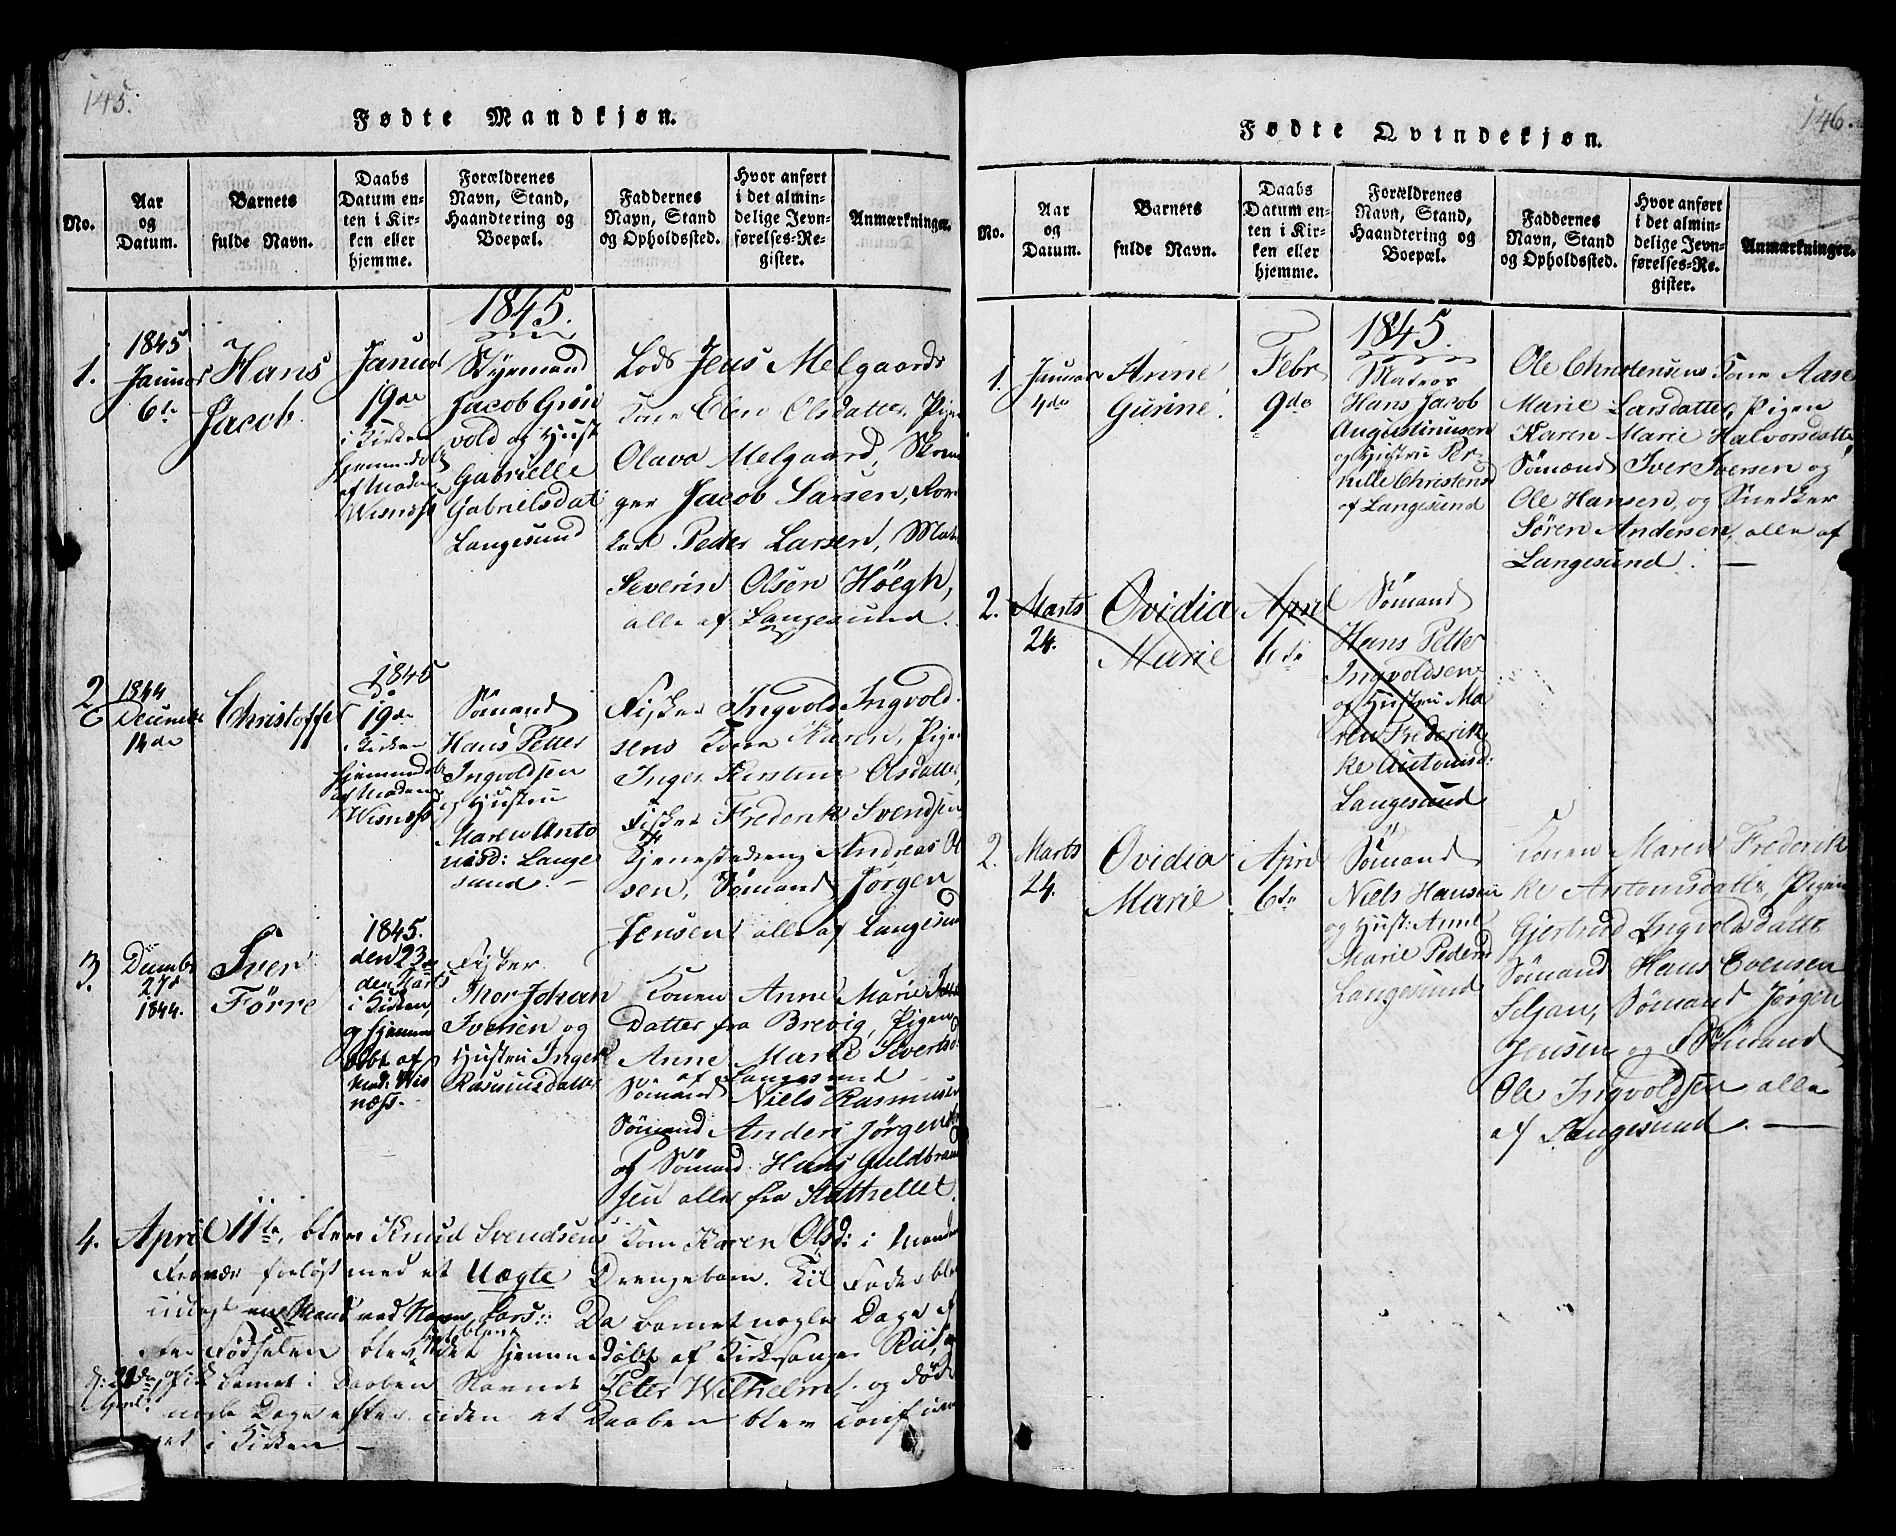 145.
Fødte Mandkjøn.
No.
Aar
og
Datum.
Barnets
fulde Navn.
Daabs
Datum en-
ten i Kir-
ken eller
hjemme.
Forældrenes
Navn, Stand,
Haandtering og
Boepæl.
Faddernes
Navn, Stand
og Opholdssted.
Hvor anført
i det almin-
delige Jevn-
førelses-Re-
gister.
Anmærkninger.
1845.
1.
1845
Januar
6te
Hans
Jacob.
Januar
19de
i Kirken
hjemmedøbt
af Madam
Wisness
Styrmand
Jacob Grón
vold og Hust
Gabrielle
Gabrielsdat
Langesund
Lods Jens Melgaards
Kone Elen Olsdatter, Pigen
Olava Melgaard,
ger Jacob Larsen,
Peder Larsen, Mat
Severin Olsen Höegh,
alle af Langesund.
2
1844
Decembr
14de
Christoffer
1845
19de
i Kirken
hjemmedøbt
af Madam
Wisness
Sømand
Hans Petter
Ingvoldsen
og Hustru
Maren Anto
nisd: Lange
sund. —
Fisker Ingvold Ingvold-
sens Kone Karen, Pigen
Inger Kirstine Olsdatter,
Fisker Frederik Svendsen
Tjenestedreng Andreas Ol
sen, Sømand Jørgen
Jensen alle af Langesund
3.
Decembr
27de
1844.
Iver
Förre
1845.
den 23de
Marts
i Kirken,
og hjemme
døbt af
Mad: Wis
næss.
Fisker
Thor Johan
Iversen og
Hustru Inger
Rasmusdatter
Konen Anne Marie
datter fra Brevig, Pigen
Anne Marie Sivertsd.
af Langesund
Sømand Niels Rasmusen
Sømand Anders Jørgensen
og Sømand Hans Guldbrand
sen alle fra Stathellet.
4. April 11te, blev Knud Svendsens Kone Karen Olsd: i Mandens
Fravær forløst med et Uægte Drengebarn. Til Fader blev
udlagt en Mand ved Navn Lars: Da barnet nogle Dage ef
ter Fødselen blev det hjemmedøbt af Kirkesanger Riis,
d: 22de April
og fik barnet i Daaben Navnet Peter Wilhelm. og døde
nogle Dage efter uden at Daaben blev confirme
ret i Kirken —
146.
Fødte Qvindekjøn.
No.
Aar
og
Datum.
Barnets
fulde Navn.
Daabs
Datum en-
ten i Kir-
ken eller
hjemme.
Forældrenes
Navn, Stand,
Haandtering og
Boepæl.
Faddernes
Navn, Stand
og Opholdssted.
Hvor anført
i det almin-
delige Jevn-
førelses-Re-
gister.
Anmærkninger.
1845.
1.
Januar
4de
Anne
Gurine.
Febr
9de
Matros
Hans Jacob
Augustinusen
og Hustru Per-
nille Christensd
af Langesund
Ole Christensens Kone Aase
Marie Larsdatter, Pigen
Karen Marie Halvorsdatter
Sømænd Iver Iversen og
Ole Hansen, og Snedker
Søren Andersen, alle af
Langesund. —
2.
Marts
24.
Ovidia
Marie
April
6te
Sømand
Hans Petter
Ingvoldsen
og Hustru Ma
ren Frederik
ke Antonisd:
Langesund
2.
Marts
24.
Ovidia
Marie
April
6te
Sømand
Niels Hansen
og Hust: Anne
Marie Pedersd
Langesund
Konen Maren Frederik
ke Antonisdatter, Pigen
Gjertrud Ingvoldsdatter
Sømand Hans Evensen
Seljan, Sømand Jørgen
Jensen og Sømand
Ole Ingvoldsen alle
af Langesund. —